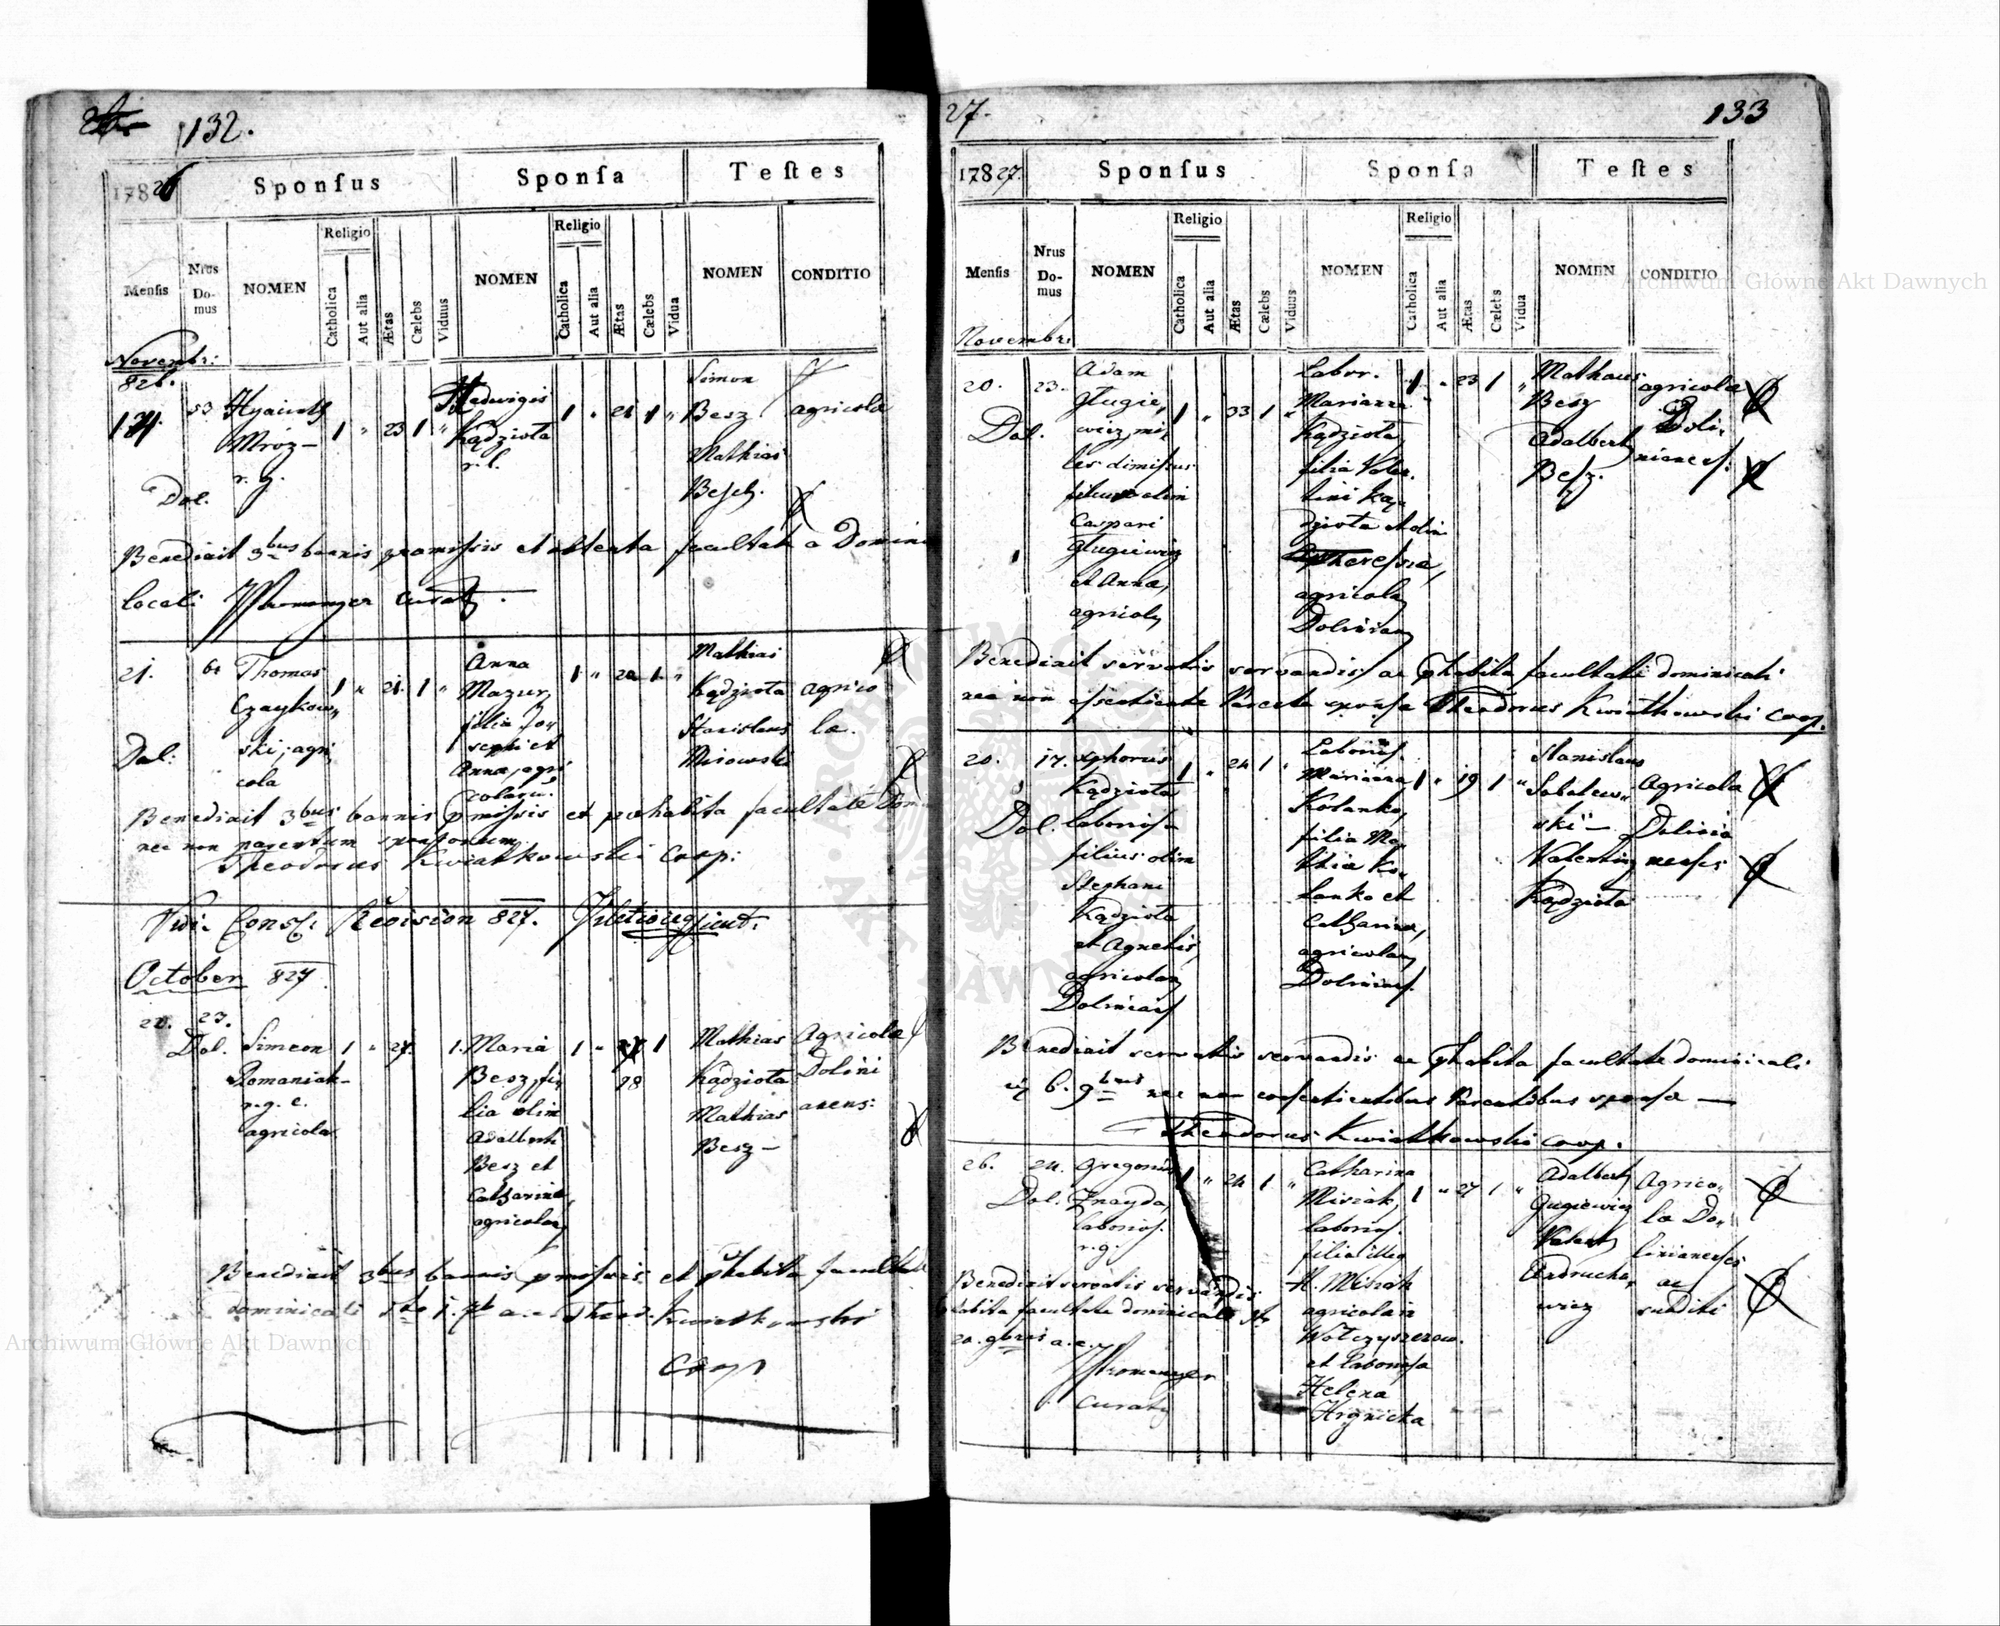 132.
1826
Sponſus
Sponſa
Teſtes
Menſis
Nrus Do-mus
NOMEN
Religio
Catholica
Aut alia
Ætas
Cælebs
Viduus
NOMEN
Religio
Catholica
Aut alia
Ætas
Cælebs
Vidua
NOMEN
CONDITIO
Novembr:
826.
53 Hyacinth
Mroz
r. g.
Dol.
1 " 23 1 "
Hedwigis
Kądzioła
r. l.
1 " 21 1 "
Simon
Besz
Mathias
agricola
Benedixit 3bus bannis praemissis et obtenta facultate a Dominio
locali
21. Thomas
Czaykow„
ski, agri
cola
Dol:
1 " 21. 1 "
Anna
Mazur,
filia Jo„
sephi et
Anna, agri
colarum.
1 " 20 1 "
Mathias
Kądziota
Stanislaus
Misowski
agrico
la.
Benedixit 3bus bannis pmissis et prehabita facultate Dom
nec non parentum sponsorum
Theodorus Kwiatkowski Coop:
Vidi Consc: Revision 827.
October 827
22. 23.
Dol. Simeon
Romaniak
r. g. e.
agricola
1 " 27. 1.
Maria
Besz, fi„
lia olim
Adalberti
Besz et
Catharina,
agricolar
1 " 1
18
Mathias
Kądziota
Mathias
Besz
Agricola
Dolini
anens:
Benedixit 3bus bannis pmissis et phabita facultate
dominicali Theod. Kwiatkowski
Coop
27.
133
1827.
Sponſus
Sponſa
Teſtes
Menſis
Nrus Do-mus
NOMEN
Religio
Catholica
Aut alia
Ætas
Cælebs
Viduus
NOMEN
Religio
Catholica
Aut alia
Ætas
Cælebs
Vidua
NOMEN
CONDITIO
Novembr:
20. 23.
Dol.
Adam
Gługie„
wicz, mi„
les dimissus
filius olim
Caspari
Gługiewicz
et Anna,
agricol
1 " 33 1 "
Labor.
Marianna
Kądziota,
filia Valen
tini Ką„
dziota et olim
Theressia,
agricola
Dolinian
1 " 23 1 "
Mathaus
Besz
Adalbert
Besz.
agricola
Doli„
nianens.
Benedixit servatis servandis, ac phabita facultate dominicali
nec non Theodorus Kwiatkowski Coop.
20. 17.
Dol.
Kądziota
laborios
filius olim
Stephani
Kądziota
et Agnetis,
agricolar
Dolinians
1 " 24 1 "
Laborios.
Marianna
Kolanko,
filia Ma„
thia Ko„
lanko et
Catharina,
agricolar
Dolinians.
1 " 19 1 "
Stanislaus
Sobolew„
ski
Valentin
Kądziota
Agricola
Dolinia
nenses
Benedixit servatis servandis ac phabita facultate dominicali
6. 9bris nec non consentientibus Parentibus sponsa
Theodorus Kwiatkowski coop.
26. 24.
Dol.
Gregorius
Znayda,
laborios.
r. g.
1 " 24 1 "
Catharina
Misiak,
laborios.
filia illeg
H. Misiak
agricolair
et laboriosa
Helena
Hrynicka
1 " 27 1 "
Adalbert
Gugiewicz
Valent
Andrucho„
wicz
Agrico„
la Do„
linianenses
ac
subditi
Benedixit servatis servandis
phabita facultate dominicali
20. 9bris a. c.
Curat
Archiwum Główne Akt Dawnych
Archiwum Główne Akt Dawnych
ARCHIWUM GŁÓWNE AKT DAWNYCH